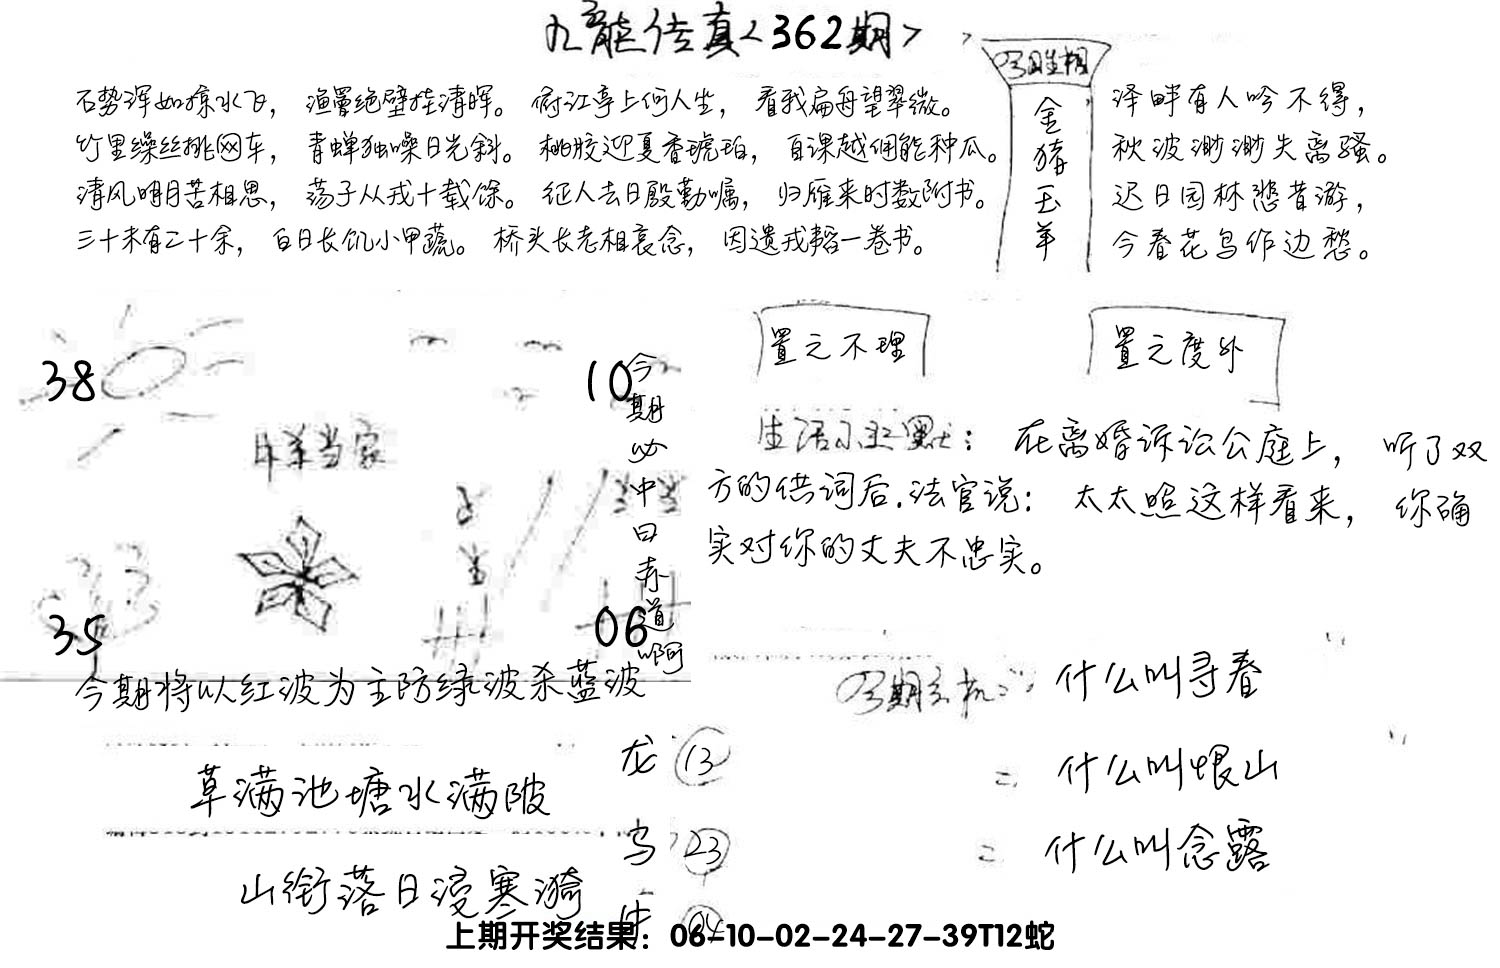 九龙传真<362期>
石势浑如掠水飞，渔罾绝壁挂清晖。俯江亭上何人坐，看我扁舟望翠微。
竹里缲丝挑网车，青蝉独噪日光斜。桃胶迎夏香琥珀，自课越佣能种瓜。
清风明月苦相思，荡子从戎十载余。征人去日殷勤嘱，归雁来时数附书。
三十未有二十余，白日长饥小甲蔬。桥头长老相哀念，因遗戎韬一卷书。
今期生相
金猪玉羊
泽畔有人吟不得，
秋波渺渺失离骚。
迟日园林悲昔游，
今春花鸟作边愁。
38
10
35
06
今期必中曰赤道啊
今期将以红波为主防绿波杀蓝波
置之不理
置之度外
生活小幽默：在离婚诉讼公庭上，听了双
方的供词后.法官说：太太照这样看来，你确
实对你的丈夫不忠实。
今期玄机：什么叫寻春
= 什么叫恨山
= 什么叫念露
草满池塘水满陂
山衔落日浸寒漪
龙 13
23
上期开奖结果：06-10-02-24-27-39T12蛇